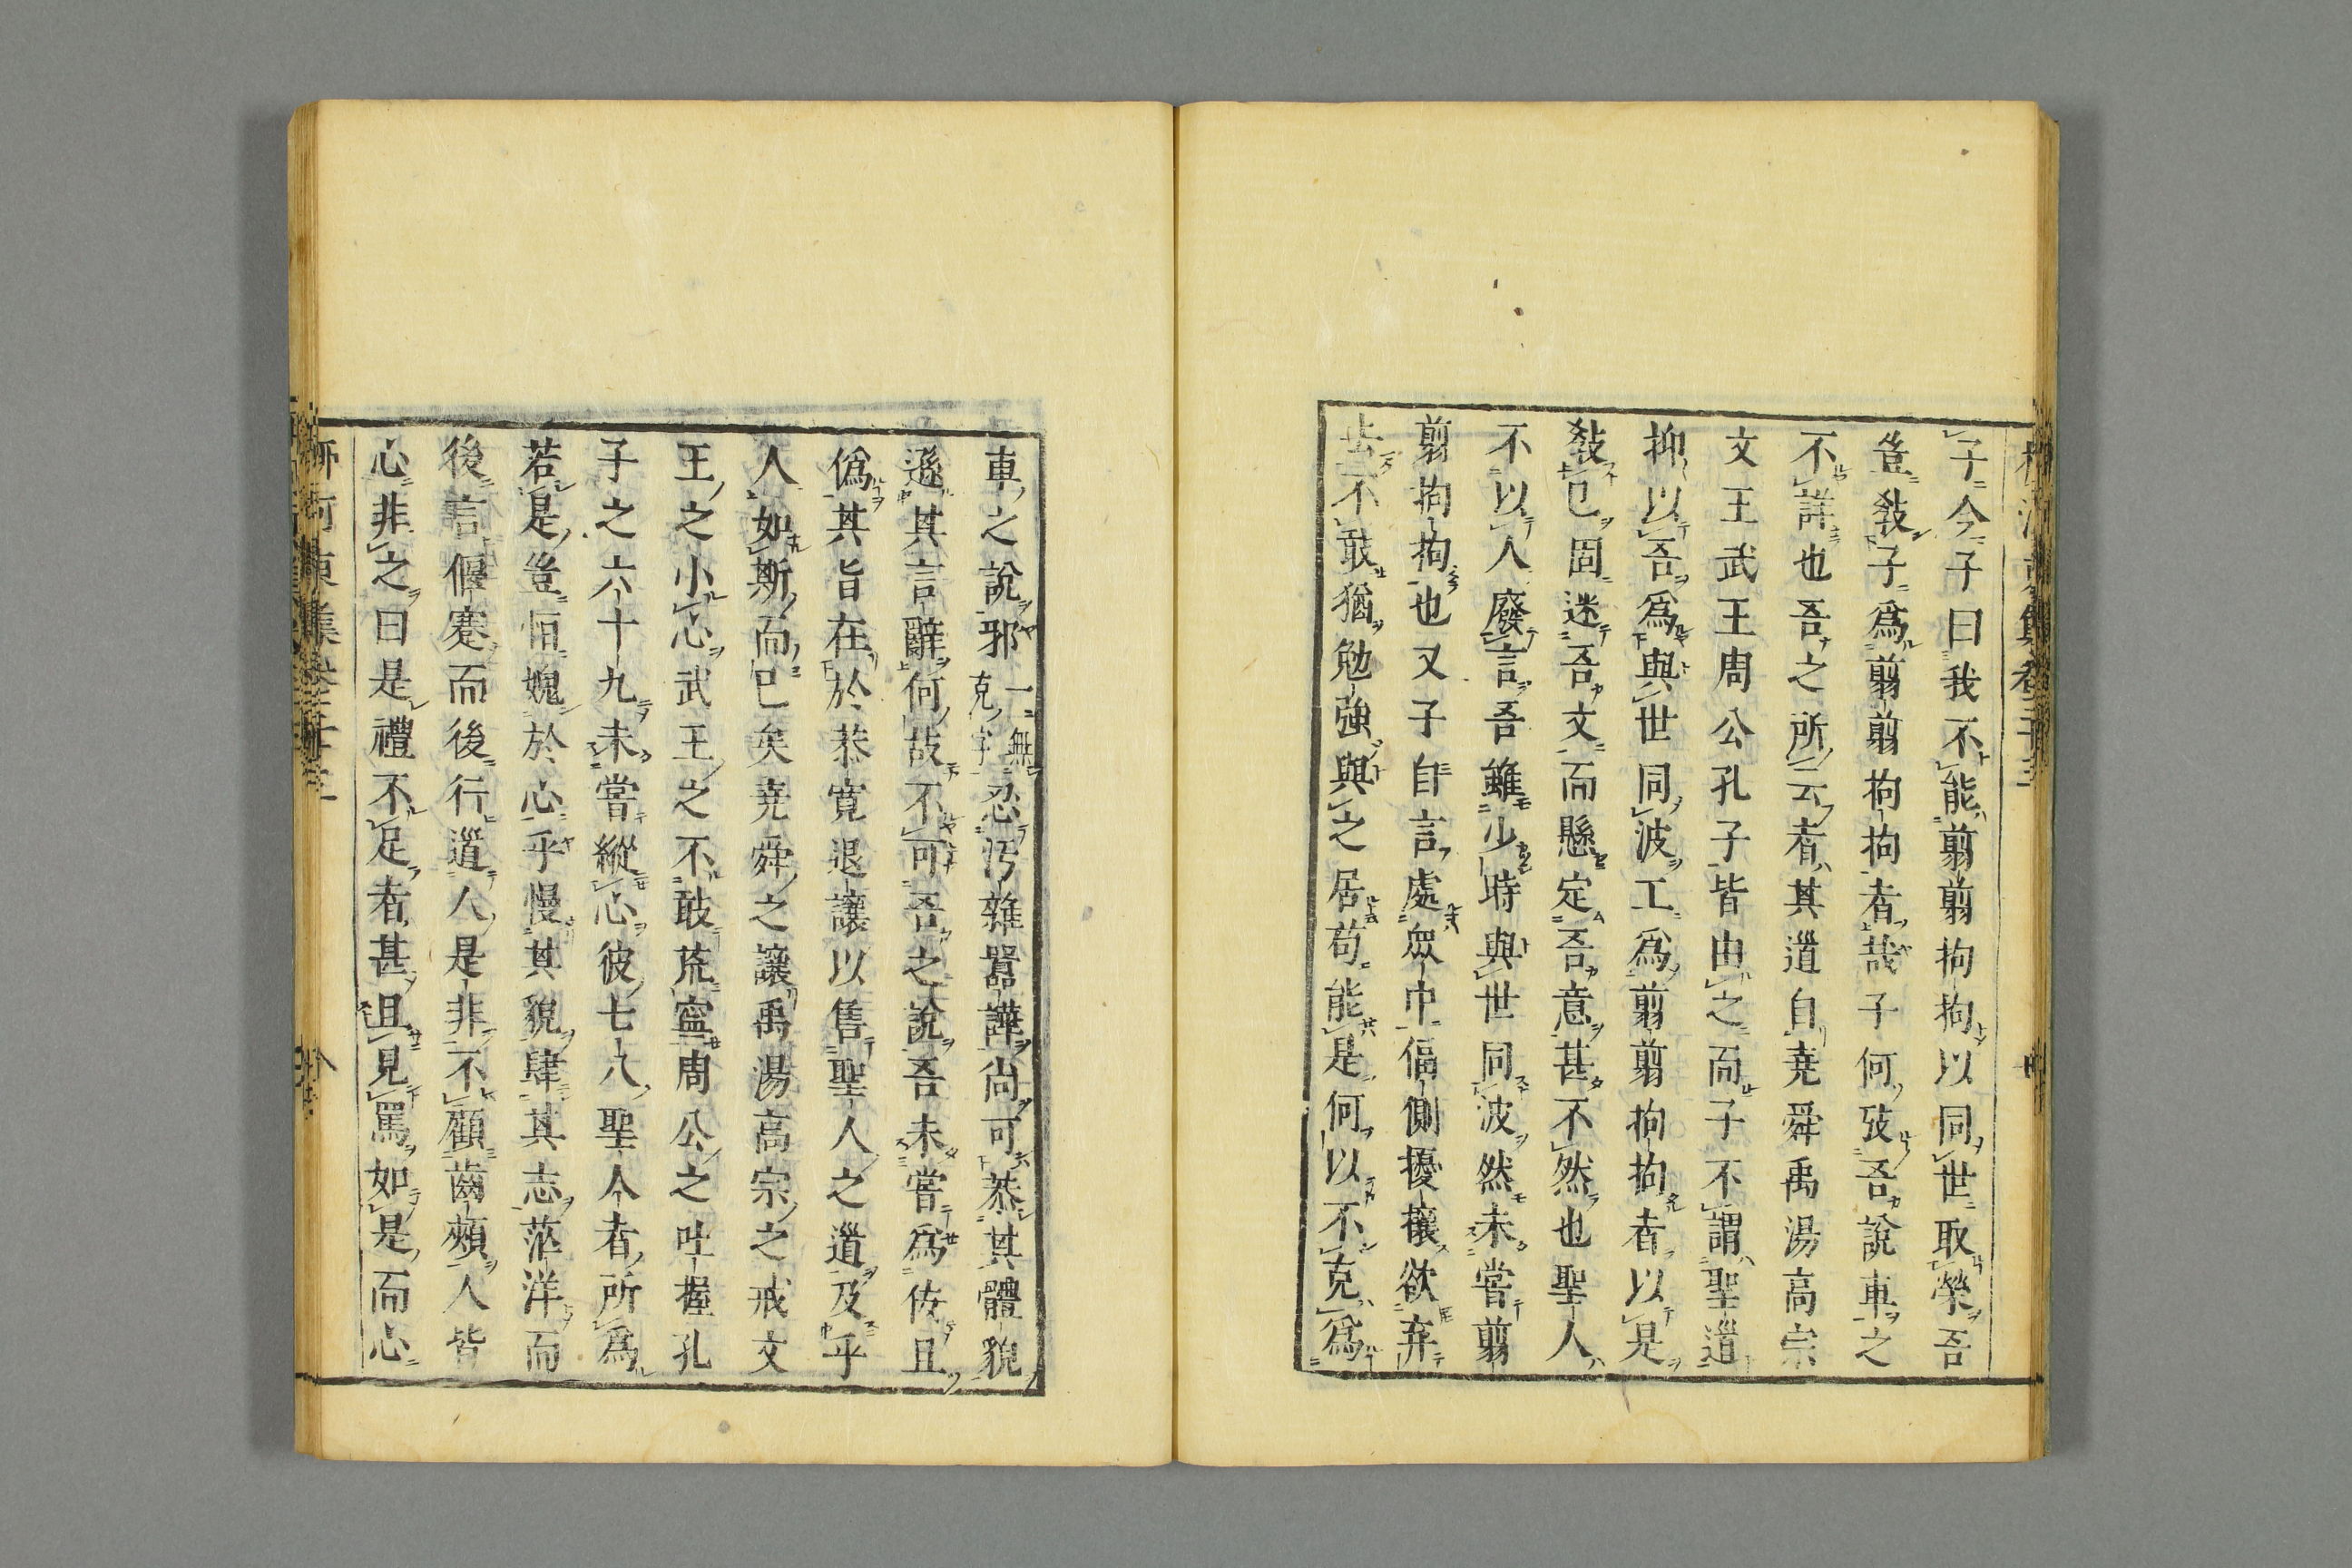 子今子曰我不能翦翦拘拘以同世取榮吾
豈敎子爲翦翦拘拘者哉子何攷吾說車之
不詳也吾之所云者其道自堯舜禹湯高宗
文王武王周公孔子皆由之而子不謂聖道
抑以吾爲與世同波工爲翦翦拘拘者以是
敎已固迷吾文而懸定吾意甚不然也聖人
不以人廢言吾雖少時與世同波然未嘗翦
翦拘拘也又子自言處眾中偪側擾攘欲弃
去不敢猶勉強與之居苟能是何以不克爲
車之說邪一無克字忍汚雜囂譁尚可恭其體貌
遜其言辭何故不可吾之說吾未嘗爲佞且
僞其旨在於恭寛退讓以售聖人之道及乎
人如斯而已矣堯舜之讓禹湯高宗之戒文
王之小心武王之不敢荒寧周公之吐握孔
子之六十九未嘗縱心彼七八聖人者所爲
若是豈恒媿於心乎慢其貌肆其志茫洋而
後言偃蹇而後行道人是非不顧齒頰人皆
心非之曰是禮不足者甚且見罵如是而心
柳河東集卷三十三